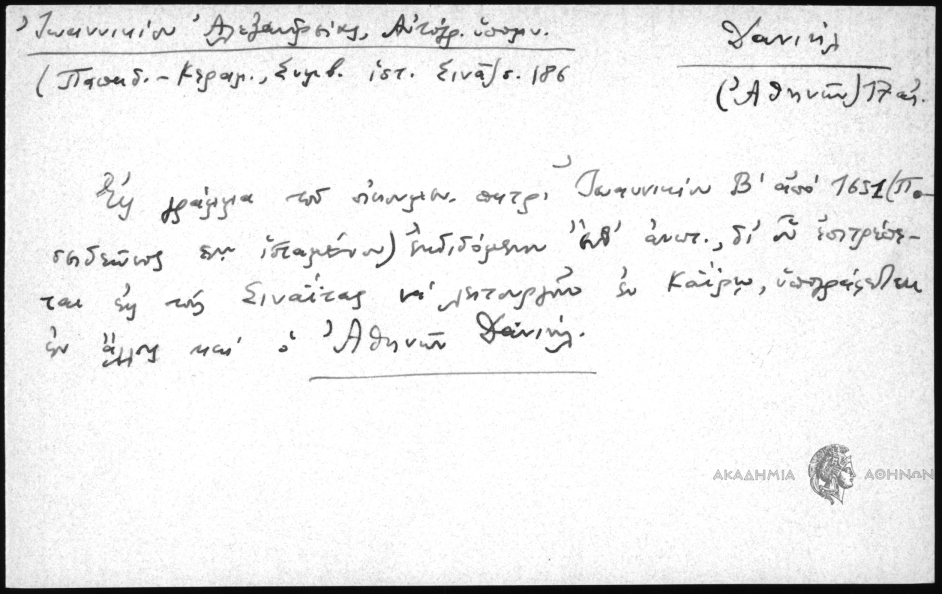 Ἰωαννικίου Ἀλεξανδρείας, Αὐτόγρ. ὑπομν.
(Παπαδ. - Κεραμ., Συμβ. ἱστ. Σινᾶ) σ. 186
Δανιήλ
(Ἀθηνῶν) 17 αἰ.
Εἰς γράμμα τοῦ οἰκουμεν. πατρ. Ἰωαννικίου Β' ἀπὸ 1651 (Πο-
ἱσταμένου) ἐκδιδόμενον ἀνωτ., δι' οὗ ἐπιτρέπε-
ται εἰς τοὺς Σιναΐτας νὰ λειτουργοῦν ἐν Καΐρῳ, ὑπογράφεται
ἐν ἄλλοις καὶ ὁ Ἀθηνῶν Δανιήλ.
ΑΚΑΔΗΜΙΑ ΑΘΗΝΩΝ